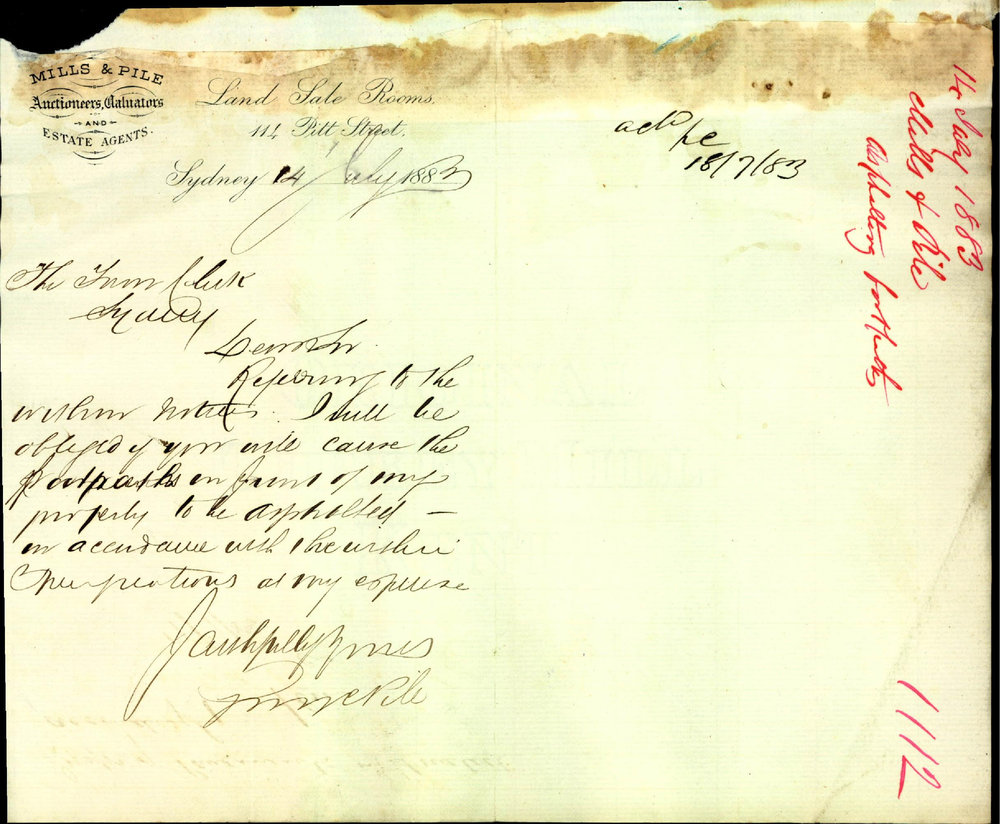 MILLS & PILE
Auctioneers, Valuators
AND
ESTATE AGENTS.
Land Sale Rooms,
114 Pitt Street,
Sydney 14 July 1883
The Town Clerk
Sydney
Dear Sir
Referring to the
within notice. I will be
obliged if you will cause the
footpaths in front of my
property to be asphalted —
in accordance with the within
specifications at my expense
Faithfully yours
Pile
18/7/83
14 July 1883
Mills & Pile
asphalting footpaths
1112